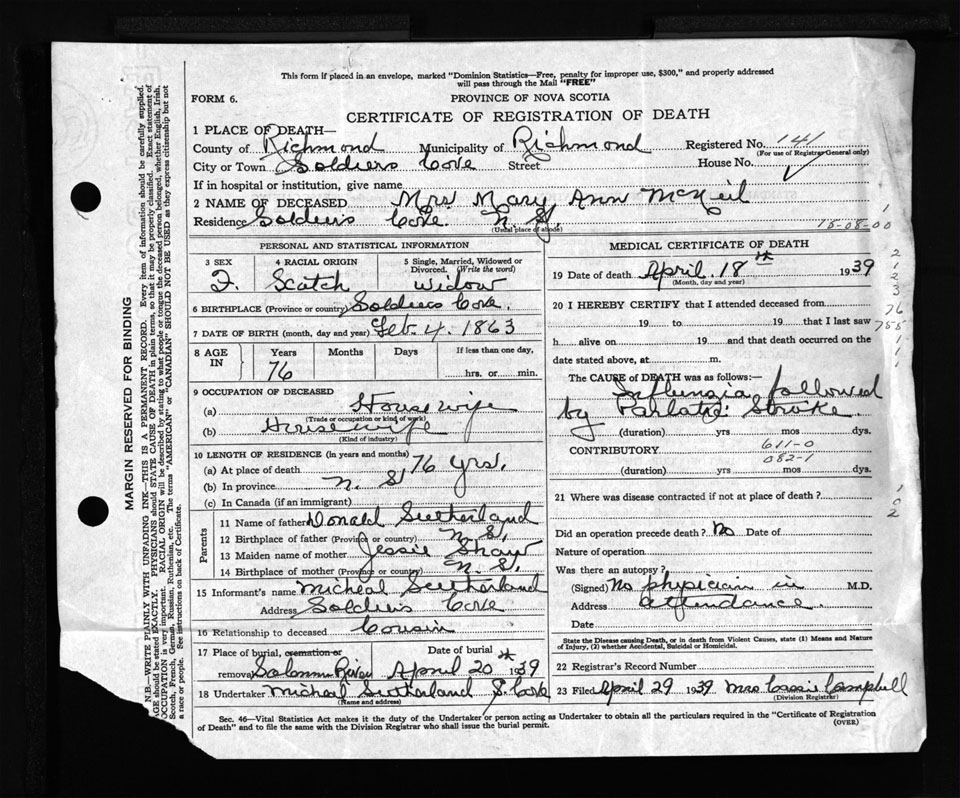 This form if placed in an envelope, marked "Dominion Statistics—Free, penalty for improper use, $300," and properly addressed
will pass through the Mail "FREE"
FORM 6.
PROVINCE OF NOVA SCOTIA
CERTIFICATE OF REGISTRATION OF DEATH
1 PLACE OF DEATH—
County of Richmond Municipality of Richmond Registered No. 141
(For use of Registrar General only)
City or Town Soldiers Cove Street House No.
If in hospital or institution, give name
2 NAME OF DECEASED Mrs Mary Ann McNeil
Residence Soldiers Cove. N S.
(Usual place of abode)
15-08-00
PERSONAL AND STATISTICAL INFORMATION
3 SEX
F.
4 RACIAL ORIGIN
Scotch
5 Single, Married, Widowed or
Divorced. (Write the word)
Widow
6 BIRTHPLACE (Province or country) Soldiers Cove.
7 DATE OF BIRTH (month, day and year) Feb 4. 1863
8 AGE IN
Years
76
Months
Days
If less than one day,
hrs. or min.
9 OCCUPATION OF DECEASED
(a) House wife
(Trade or occupation or kind of work)
(b) House wife
(Kind of industry)
10 LENGTH OF RESIDENCE (in years and months)
(a) At place of death 76 yrs.
(b) In province N. S
(c) In Canada (if an immigrant)
Parents
11 Name of father Donald Sutherland
12 Birthplace of father (Province or country) N. S.
13 Maiden name of mother Jessie Shaw
14 Birthplace of mother (Province or country) N. S.
15 Informant's name Micheal Sutherland
Address Soldiers Cove
16 Relationship to deceased Cousin
17 Place of burial, cremation or
removal River
Date of burial
April 20 th 1939
18 Undertaker Micheal Sutherland S. Cove
(Name and address)
MEDICAL CERTIFICATE OF DEATH
19 Date of death April. 18 th 1939
(Month, day and year)
20 I HEREBY CERTIFY that I attended deceased from
19 to 19 that I last saw
h alive on 19 and that death occurred on the
date stated above, at m.
The CAUSE of DEATH was as follows:—
followed
by Stroke.
(duration) yrs mos dys.
CONTRIBUTORY 611-0
082-1
(duration) yrs mos dys.
21 Where was disease contracted if not at place of death?
Did an operation precede death? No Date of
Nature of operation
Was there an autopsy?
(Signed) No physician in M.D.
Address attendance.
Date
State the Disease causing Death, or in death from Violent Causes, state (1) Means and Nature
of Injury, (2) whether Accidental, Suicidal or Homicidal.
22 Registrar's Record Number
23 Filed April 29 1939 Mrs Cassie Campbell
(Division Registrar)
1
2
1
2
3
76
755
1
1
1
1
0
2
Sec. 46—Vital Statistics Act makes it the duty of the Undertaker or person acting as Undertaker to obtain all the particulars required in the "Certificate of Registration
of Death" and to file the same with the Division Registrar who shall issue the burial permit. (OVER)
MARGIN RESERVED FOR BINDING
N.B.—WRITE PLAINLY WITH UNFADING INK—THIS IS A PERMANENT RECORD. Every item of information should be carefully supplied.
AGE should be stated EXACTLY. PHYSICIANS should STATE CAUSE OF DEATH in plain terms, so that it may be properly classified. Exact statement of
OCCUPATION is very important. RACIAL ORIGIN will be described by stating to what people or tongue the deceased person belonged, whether English, Irish,
Scotch, French, German, Russian, Ruthenian, etc. The terms "AMERICAN" or "CANADIAN" SHOULD NOT BE USED as they express citizenship but not
a race or people. See instructions on back of Certificate.